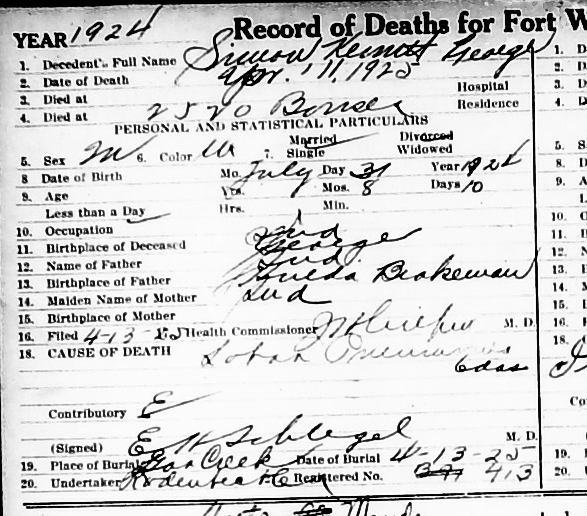 YEAR 1924 Record of Deaths for Fort W
1. Decedent's Full Name Simon Kenneth George
2. Date of Death Apr. 11, 1925
3. Died at Hospital
4. Died at 2520 Bonser Residence
PERSONAL AND STATISTICAL PARTICULARS
5. Sex M 6. Color W 7. Married Single Divorced Widowed
8 Date of Birth Mo. July Day 31 Year 1924
9. Age Yrs. Mos. 8 Days 10
Less than a Day Hrs. Min.
10. Occupation
11. Birthplace of Deceased Ind
12. Name of Father George
13. Birthplace of Father Ind
14. Maiden Name of Mother Brakeman
15. Birthplace of Mother Ind
16. Filed 4-13-25 Health Commissioner M. D.
18. CAUSE OF DEATH Lobar Pneumonia
6 das
Contributory
(Signed) E H Schlegel M. D.
19. Place of Burial Gar Creek Date of Burial 4-13-25
20. Undertaker Registered No. 413